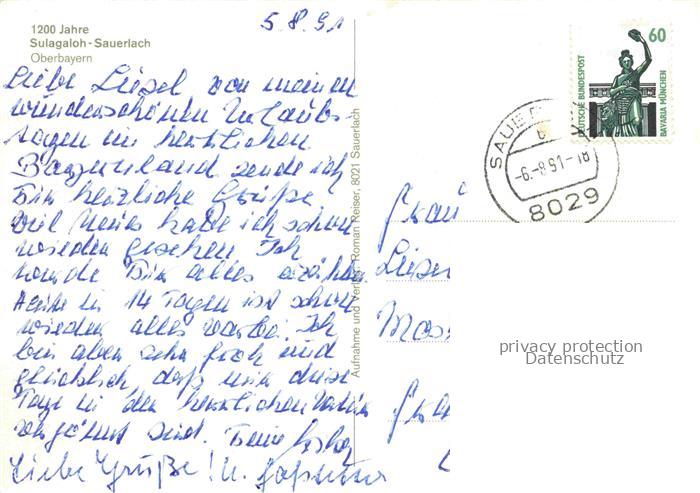 5.8.91
1200 Jahre
Sulagaloh - Sauerlach
Oberbayern
Liebe Liesel von meinen
wunderschönen Urlaubs-
tagen im herrlichen
Bayernland sende ich
Dir herzliche Grüße.
Viel Neues habe ich schon
wieder gesehen. Ich
werde Dir alles erzählen.
Heute in 14 Tagen ist schon
wieder alles vorbei. Ich
bin aber sehr froh und
glücklich, daß mir diese
Tage in der herrlichen Natur
vergönnt sind. Deine
Liebe Grüße! u.
Aufnahme und Verlag: Roman Reiser, 8021 Sauerlach
DEUTSCHE BUNDESPOST
60
BAVARIA MÜNCHEN
SAUER
-6.-8.91-18
8029
Frau
Liesel
Mos
Fra
privacy protection
Datenschutz